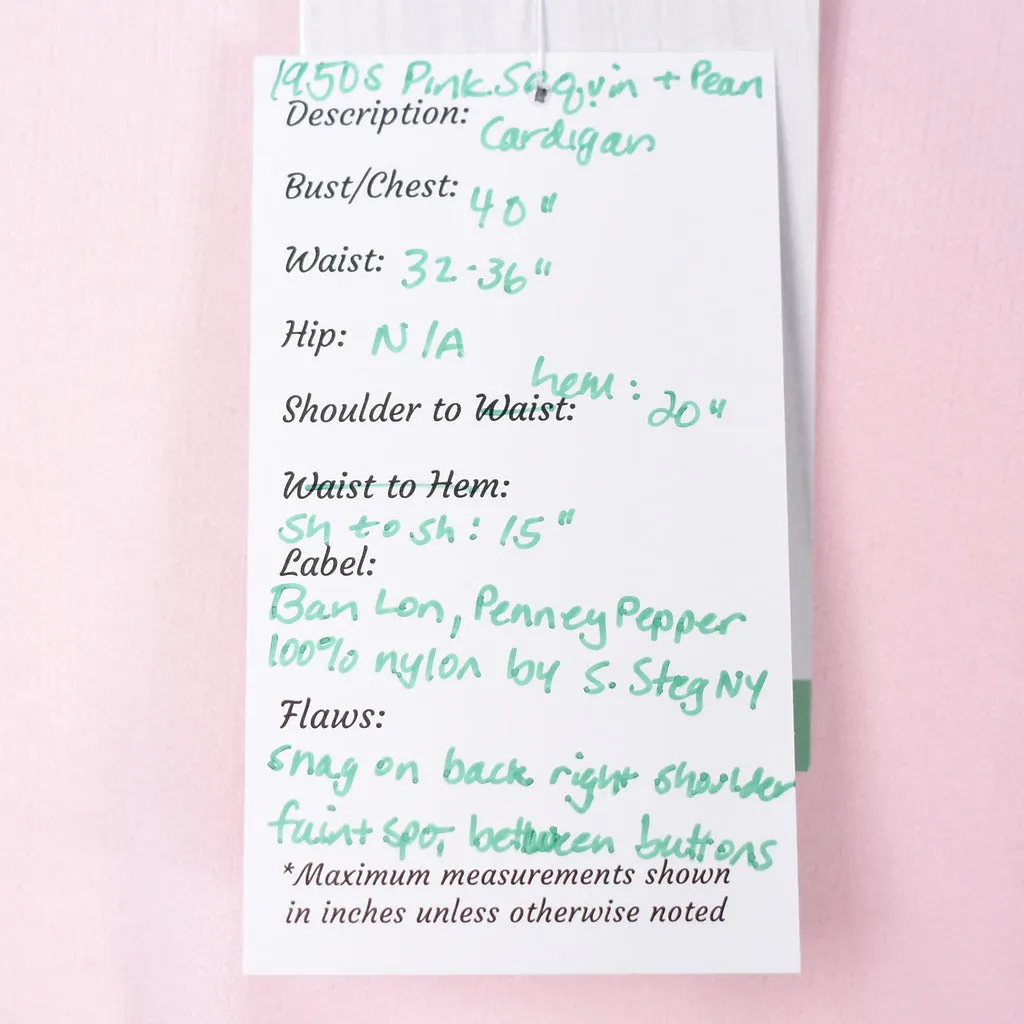 1950s Pink Sequin + Pearl
Description: Cardigan
Bust/Chest: 40"
Waist: 32-36"
Hip: N/A
hem: 20"
Shoulder to Waist:
Waist to Hem:
sh to sh: 15"
Label:
Ban Lon, Penney Pepper
100% nylon by S. Steg NY
Flaws:
snag on back right shoulder
faint spot between buttons
*Maximum measurements shown
in inches unless otherwise noted